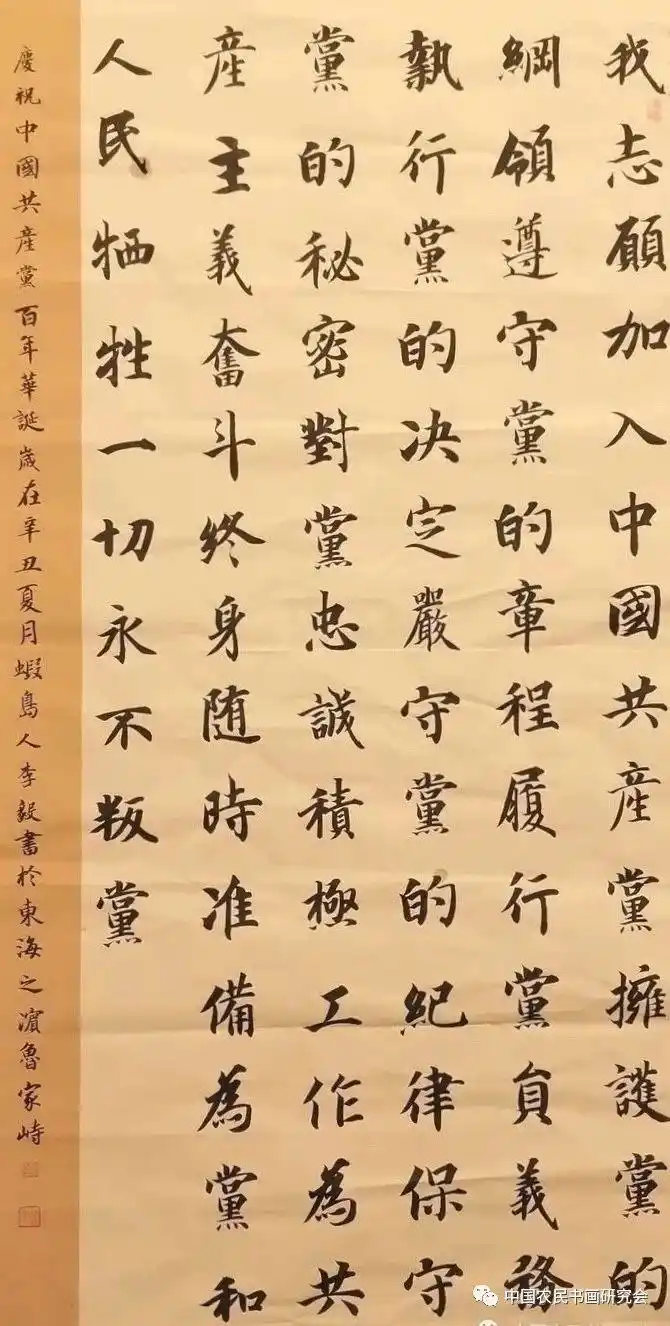 我志願加入中國共産黨擁護黨的
綱領遵守黨的章程履行黨員義務
執行黨的决定嚴守黨的紀律保守
黨的秘密對黨忠誠積極工作為共
産主義奮斗終身随時准備為黨和
人民牺牲一切永不叛黨
慶祝中國共産黨百年華誕歲在辛丑夏月蝦島人李毅書於東海之濱魯家峙
中国农民书画研究会